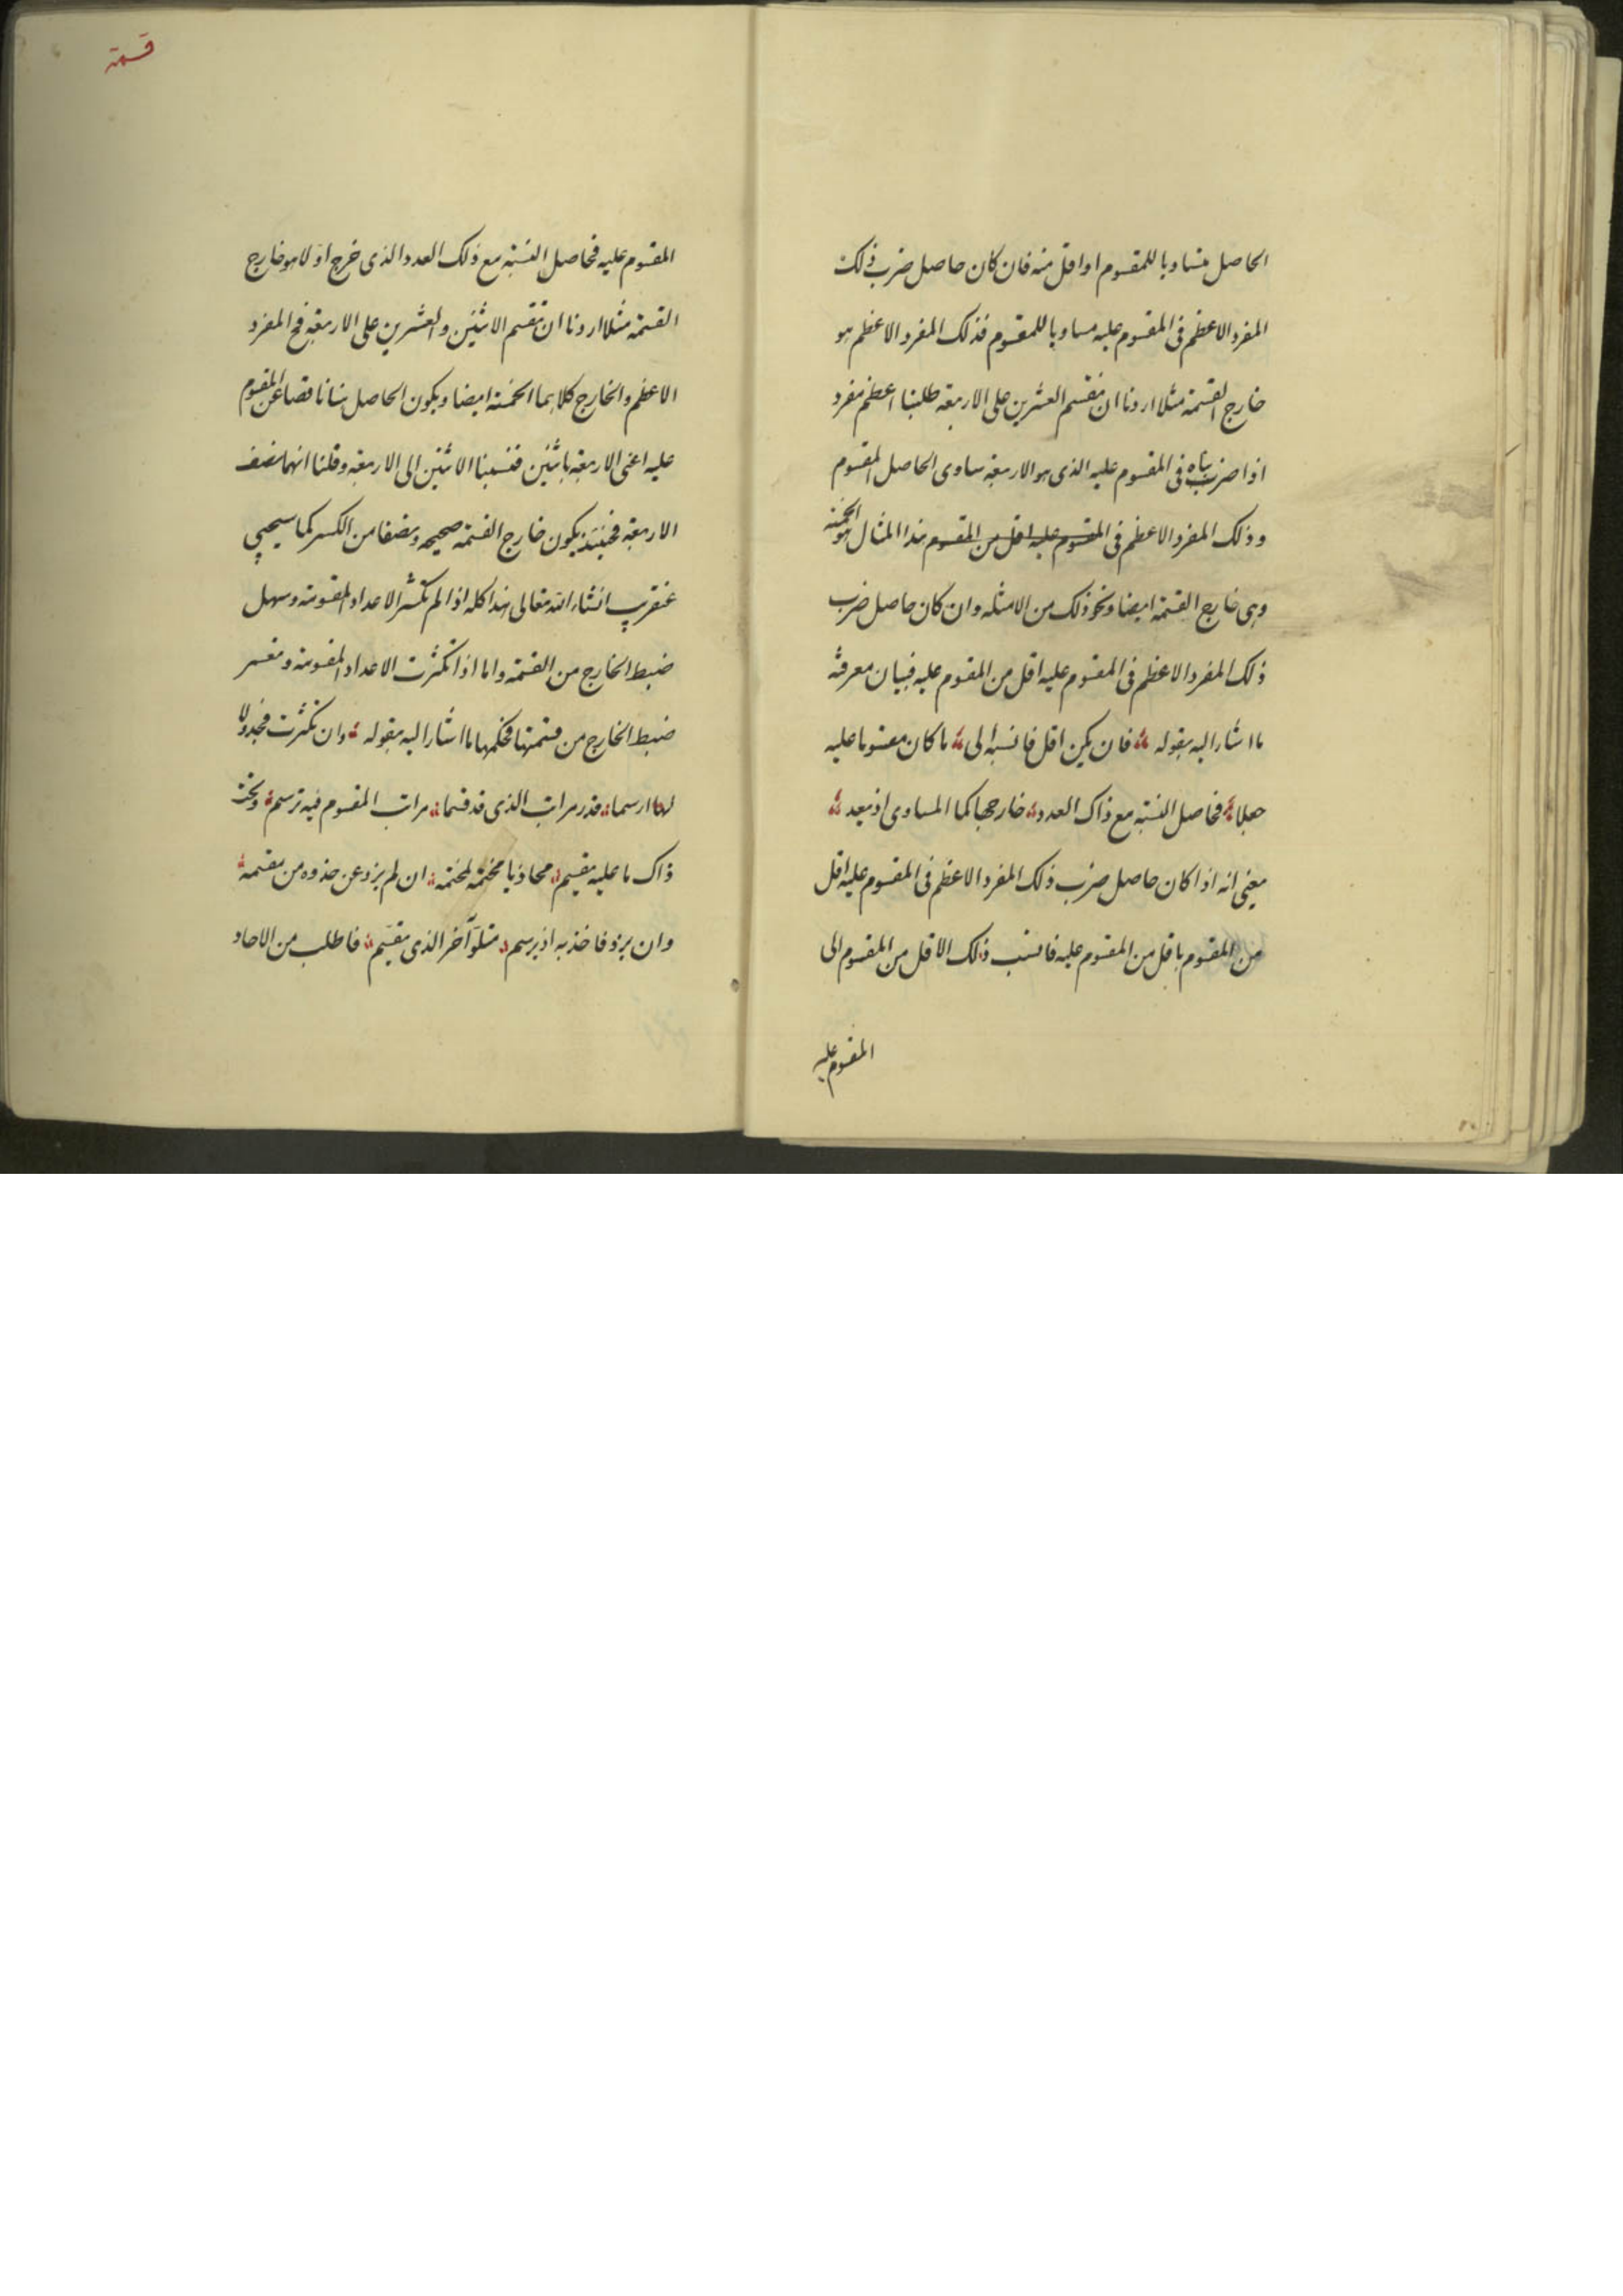 الحاصل متساويا للمقسوم او اقل منه فان كان حاصل ضرب ذلك
المفرد الاعظم فى المقسوم عليه مساويا للمقسوم فذلك المفرد الاعظم هو
خارج القسمة مثلا اردنا ان نقسم العشرين على الاربعة طلبنا اعظم مفرد
اذا ضربناه فى المقسوم عليه الذى هو الاربعة ساوى الحاصل المقسوم
وذلك المفرد الاعظم فى المقسوم عليه اقل من المقسوم هذا المثال هو الخمسة
وهى خارج القسمة ايضا ونحو ذلك من الامثلة وان كان حاصل ضرب
ذلك المفرد الاعظم فى المقسوم عليه اقل من المقسوم عليه فبيان معرفته
ما اشار اليه بقوله فان يكن اقل فانسبه الى ما كان مقسوما عليه
جعلا فحاصل النسبة مع ذاك العدد خارجها كما المساوى اذ يعد
يعنى انه اذا كان حاصل ضرب ذلك المفرد الاعظم فى المقسوم عليه اقل
من المقسوم باقل من المقسوم عليه فانسب ذلك الاقل من المقسوم الى
المقسوم عليه
قسمة
المقسوم عليه فحاصل النسبة مع ذلك العدد الذى خرج اولا هو خارج
القسمة مثلا اردنا ان نقسم الاثنين والعشرين على الاربعة فح المفرد
الاعظم والخارج كلاهما الخمسة ايضا ويكون الحاصل ناقصا عن المقسوم
عليه اعنى الاربعة باثنين فنسبنا الاثنين الى الاربعة وقلنا انهما نصف
الاربعة فحينئذ يكون خارج القسمة صحيحه ونصفا من الكسر كما سيجيى
عنقريب انشاء الله تعالى هذا كله اذا لم تكثر الاعداد المقسومة وسهل
ضبط الخارج من القسمة واما اذا تكثرت الاعداد المقسومة وتعسر
ضبط الخارج من قسمتها فحكمها ما اشار اليه بقوله وان تكثرت فجدولا
لها ارسما قدر مراتب الذى قد قسما مراتب المقسوم فيه ترسم وتحت
ذاك ما عليه يقسم محاذيا مختمه لمختمه ان لم يزد عن حذوه من مقسمه
وان يزد فاخذ به اذ يرسم متلو آخر الذى يقسم فاطلب من الاحاد